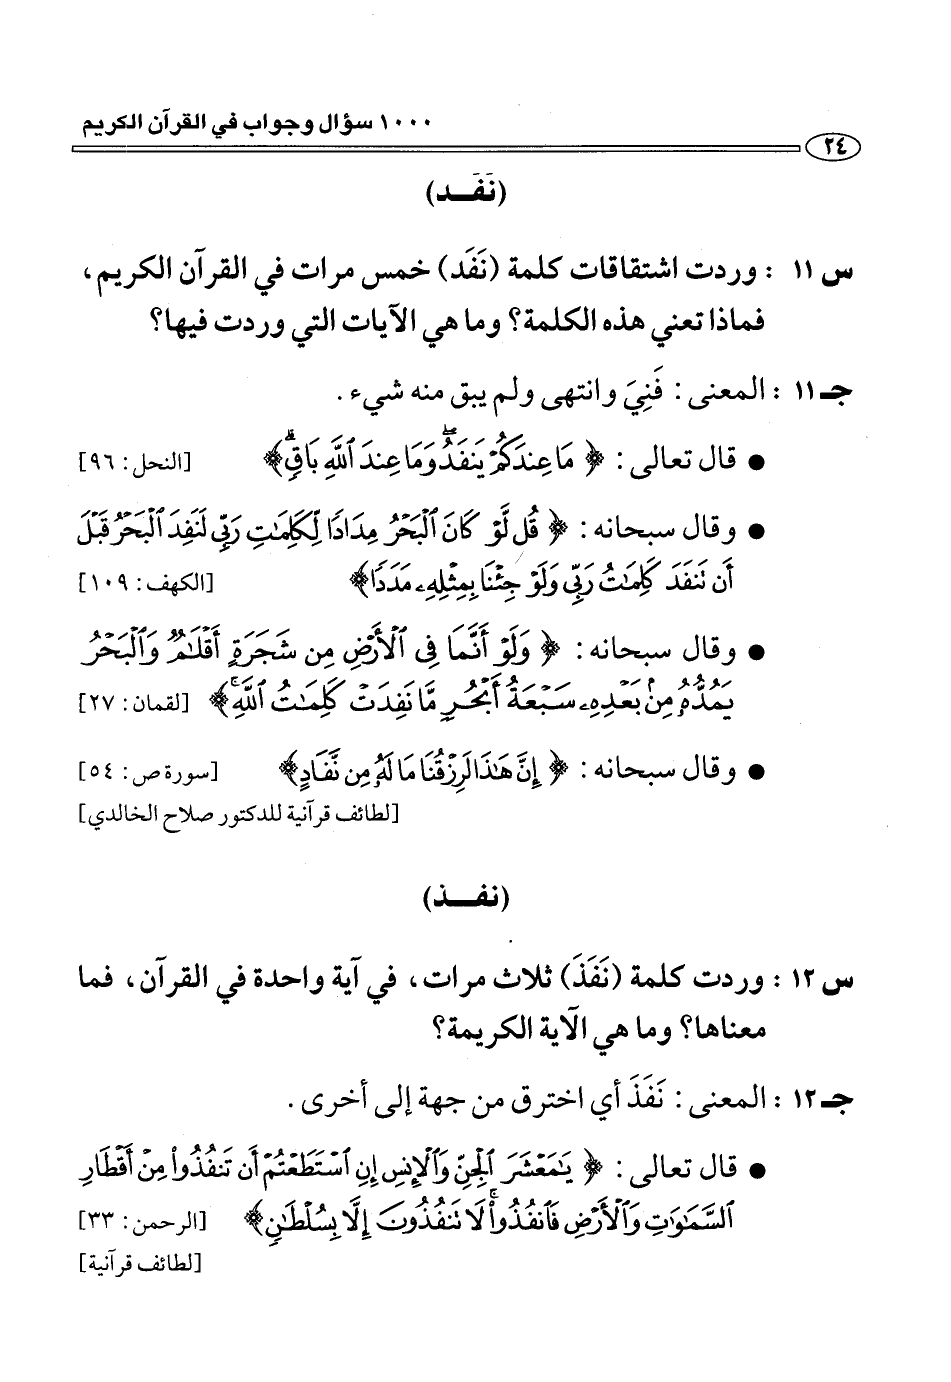 ١٠٠٠ سؤال وجواب في القرآن الكريم
٢٤
(نَفَـــد)
س ١١ : وردت اشتقاقات كلمة (نَفَد) خمس مرات في القرآن الكريم،
فماذا تعني هذه الكلمة؟ وما هي الآيات التي وردت فيها؟
جـ ١١ : المعنى : فَنِيَ وانتهى ولم يبق منه شيء .
● قال تعالى : ﴿ مَا عِندَكُمْ يَنفَدُ ۖ وَمَا عِندَ ٱللَّهِ بَاقٍ ۗ ﴾ [النحل : ٩٦]
● وقال سبحانه : ﴿ قُل لَّوْ كَانَ ٱلْبَحْرُ مِدَادًا لِّكَلِمَٰتِ رَبِّى لَنَفِدَ ٱلْبَحْرُ قَبْلَ
أَن تَنفَدَ كَلِمَٰتُ رَبِّى وَلَوْ جِئْنَا بِمِثْلِهِۦ مَدَدًا ﴾ [الكهف : ١٠٩]
● وقال سبحانه : ﴿ وَلَوْ أَنَّمَا فِى ٱلْأَرْضِ مِن شَجَرَةٍ أَقْلَٰمٌ وَٱلْبَحْرُ
يَمُدُّهُۥ مِنۢ بَعْدِهِۦ سَبْعَةُ أَبْحُرٍ مَّا نَفِدَتْ كَلِمَٰتُ ٱللَّهِ ۗ ﴾ [لقمان : ٢٧]
● وقال سبحانه : ﴿ إِنَّ هَٰذَا لَرِزْقُنَا مَا لَهُۥ مِن نَّفَادٍ ﴾ [سورة ص : ٥٤]
[لطائف قرآنية للدكتور صلاح الخالدي]
(نفـــذ)
س ١٢ : وردت كلمة (نَفَذَ) ثلاث مرات، في آية واحدة في القرآن، فما
معناها؟ وما هي الآية الكريمة؟
جـ ١٢ : المعنى : نَفَذَ أي اخترق من جهة إلى أخرى .
● قال تعالى : ﴿ يَٰمَعْشَرَ ٱلْجِنِّ وَٱلْإِنسِ إِنِ ٱسْتَطَعْتُمْ أَن تَنفُذُوا۟ مِنْ أَقْطَارِ
ٱلسَّمَٰوَٰتِ وَٱلْأَرْضِ فَٱنفُذُوا۟ ۚ لَا تَنفُذُونَ إِلَّا بِسُلْطَٰنٍ ﴾ [الرحمن : ٣٣]
[لطائف قرآنية]